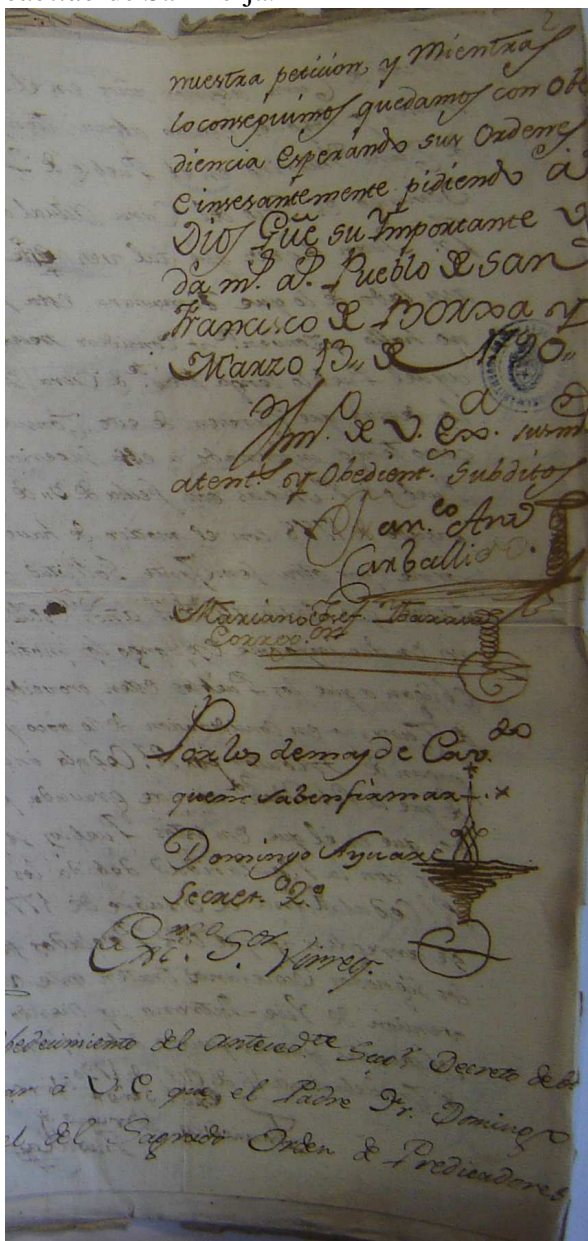 nuestra peticion, y Mientras
lo conseguimos quedamos con Obe
diencia Esperando sus Ordenes
E insesantemente pidiendo à
Dios Gūe su Ymportante V
da m.s a.s Pueblo de San
Francisco de Borxa y
Marzo 13,, de 1790,,
de V. Ex.a susm
atent.s y Obedient.s Subditos
Fran.co Anx
Carballido.
Mariano Josef Ybarawa
Correo.or
Por los demas de Cav.do
quenō saben firmar
Domingo Ayuarè
Secret.o 2.o
Exc.mo S.or Virrey.
bedecimiento del anteced.te Sup.r Decreto debo
ar à V. E. que el Padre Fr. Domingo
l del Sagrado Orden de Predicadores